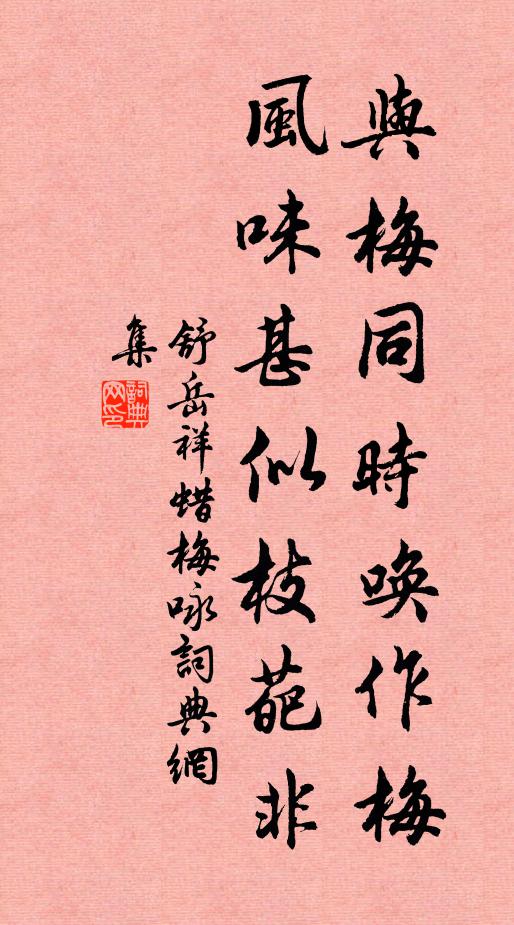 與梅同時喚作梅
風味甚似枝葩非
舒岳祥蜡梅咏詞典網
集
詞典
网印